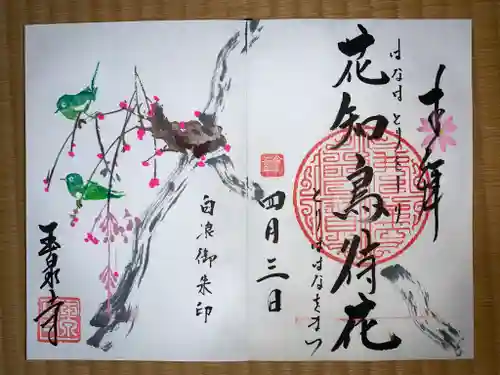 奉拝
はなは とりをしり
花知鳥待花
とりははなをまつ
四月三日
白浪御朱印
玉泉寺